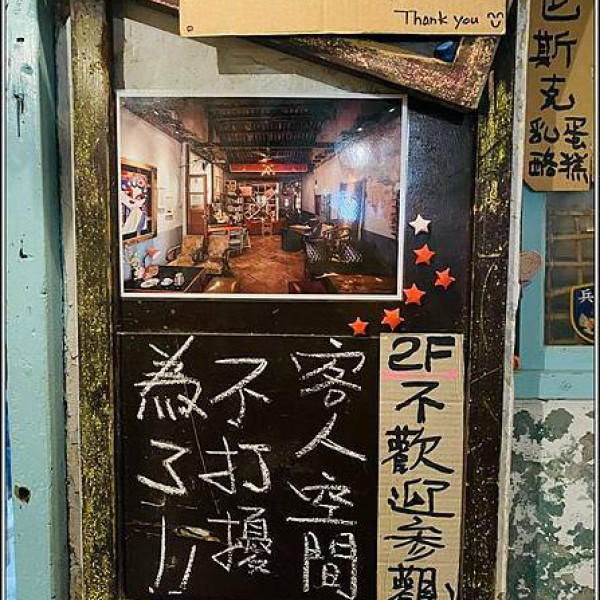 Thank you
巴斯克
乳酪
蛋糕
為了!!
不打擾
客人空間
2F
不歡迎參觀
兵